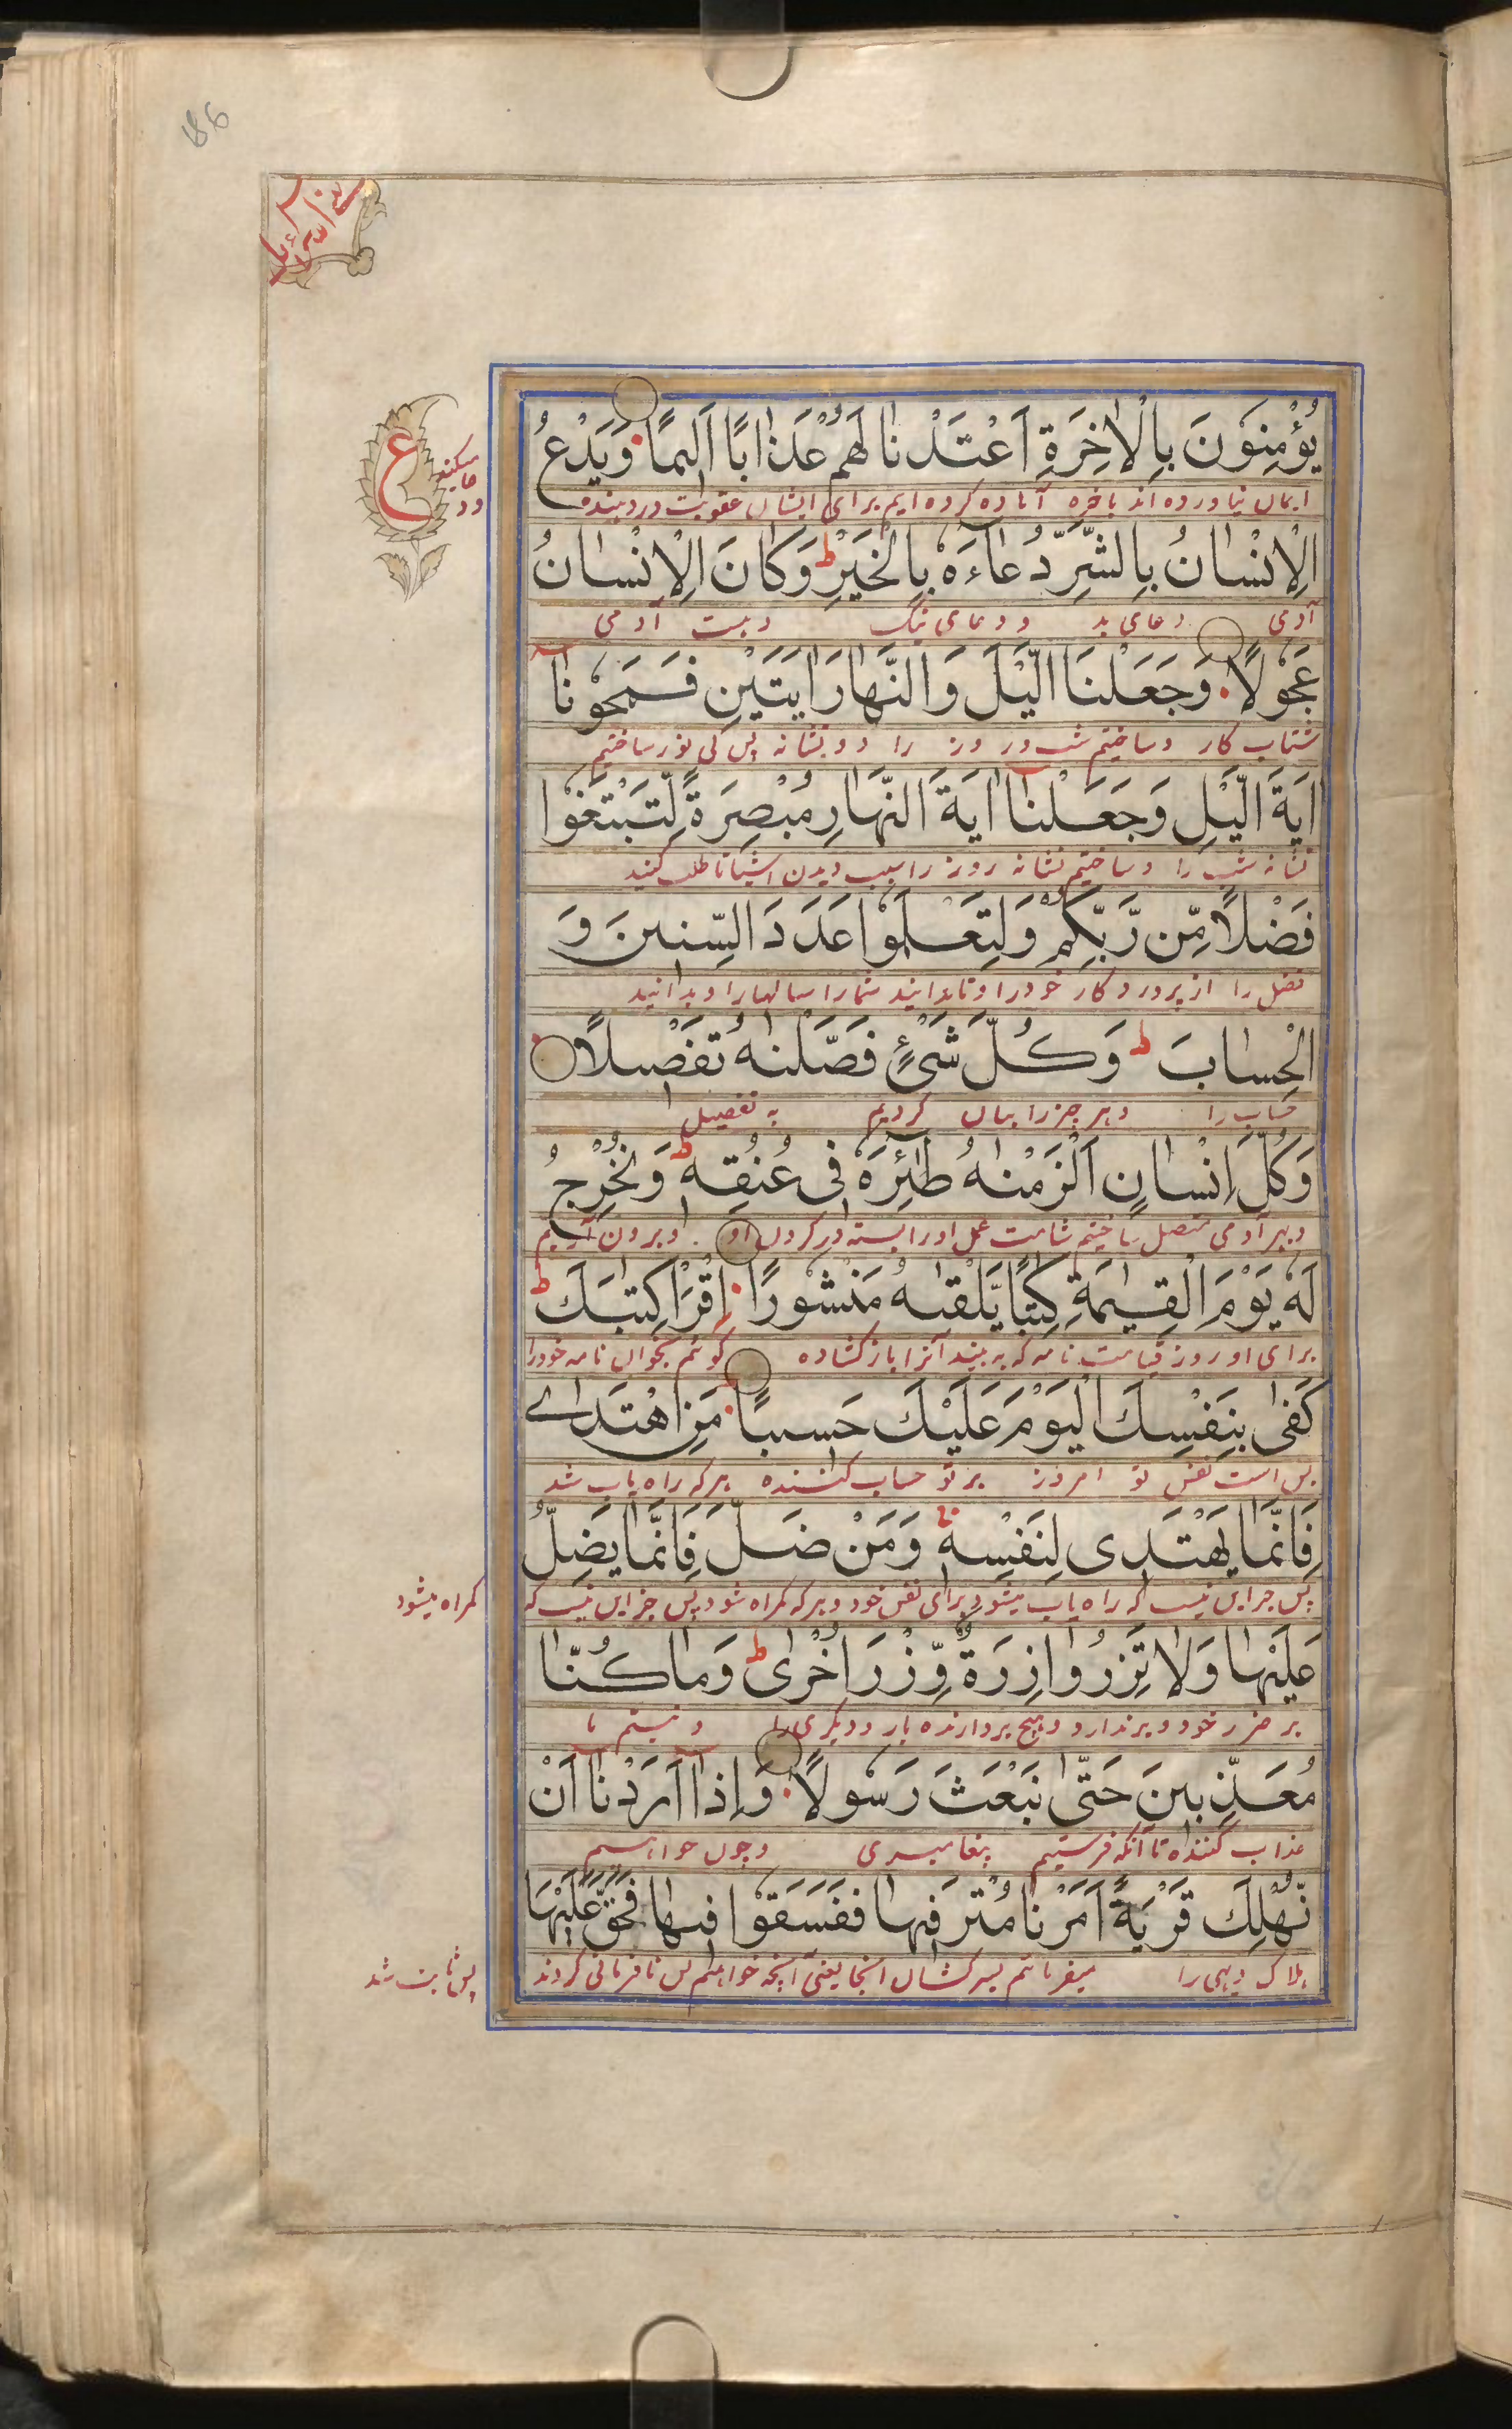 186
سبحن الذی
ع
یُؤْمِنُوْنَ بِالْاٰخِرَةِ اَعْتَدْنَا لَهُمْ عَذَابًا اَلِیْمًا وَیَدْعُ
ایمان نیاورده اند باخره آماده کرده ایم برای ایشان عقوبت درد دهنده
ودعا میکند
الْاِنْسَانُ بِالشَّرِّ دُعَآءَهٗ بِالْخَیْرِ ط وَكَانَ الْاِنْسَانُ
آدمی دعای بد و دعای نیک و هست آدمی
عَجُوْلًا وَجَعَلْنَا الَّیْلَ وَالنَّهَارَ اٰیَتَیْنِ فَمَحَوْنَآ
شتاب کار و ساختیم شب و روز را دو نشانه پس بی نور ساختیم
اٰیَةَ الَّیْلِ وَجَعَلْنَآ اٰیَةَ النَّهَارِ مُبْصِرَةً لِّتَبْتَغُوْا
نشانه شب را و ساختیم نشانه روز را سبب دیدن اشیا تا طلب کنید
فَضْلًا مِّنْ رَّبِّكُمْ وَلِتَعْلَمُوْا عَدَدَ السِّنِیْنَ وَ
فضل را از پروردگار خود را و تا بدانید شمار سالها را و بدانید
الْحِسَابَ ط وَكُلَّ شَیْءٍ فَصَّلْنٰهُ تَفْصِیْلًا
حساب را و هر چیز را بیان کردیم به تفصیل
وَكُلَّ اِنْسَانٍ اَلْزَمْنٰهُ طٰٓئِرَهٗ فِیْ عُنُقِهٖ ط وَنُخْرِجُ
و بهر آدمی متصل ساختیم شامت عمل او را بسته در گردن او و برون آریم
لَهٗ یَوْمَ الْقِیٰمَةِ كِتٰبًا یَّلْقٰىهُ مَنْشُوْرًا اِقْرَاْ كِتٰبَكَ ط
برای او روز قیامت نامه که به بیند آنرا باز کشاده گوئیم بخوان نامه خود را
كَفٰی بِنَفْسِكَ الْیَوْمَ عَلَیْكَ حَسِیْبًا مَنِ اهْتَدٰی
بس است نفس تو امروز بر تو حساب کننده هر که راه یاب شد
فَاِنَّمَا یَهْتَدِیْ لِنَفْسِهٖ وَمَنْ ضَلَّ فَاِنَّمَا یَضِلُّ
پس جز این نیست که راه یاب میشود برای نفس خود و هر که گمراه شود پس جز این نیست که
گمراه میشود
عَلَیْهَا وَلَا تَزِرُ وَازِرَةٌ وِّزْرَ اُخْرٰی ط وَمَا كُنَّا
بر ضرر خود و بر ندارد هیچ بردارنده بار دیگری را و نیستیم ما
مُعَذِّبِیْنَ حَتّٰی نَبْعَثَ رَسُوْلًا وَاِذَآ اَرَدْنَآ اَنْ
عذاب کننده تا آنکه فرستیم پیغامبری و چون خواهیم
نُّهْلِكَ قَرْیَةً اَمَرْنَا مُتْرَفِیْهَا فَفَسَقُوْا فِیْهَا فَحَقَّ عَلَیْهَا
هلاک دیهی را میفرمائیم بسرکشان انجا یعنی آنچه خواهیم پس نافرمانی کردند
پس ثابت شد